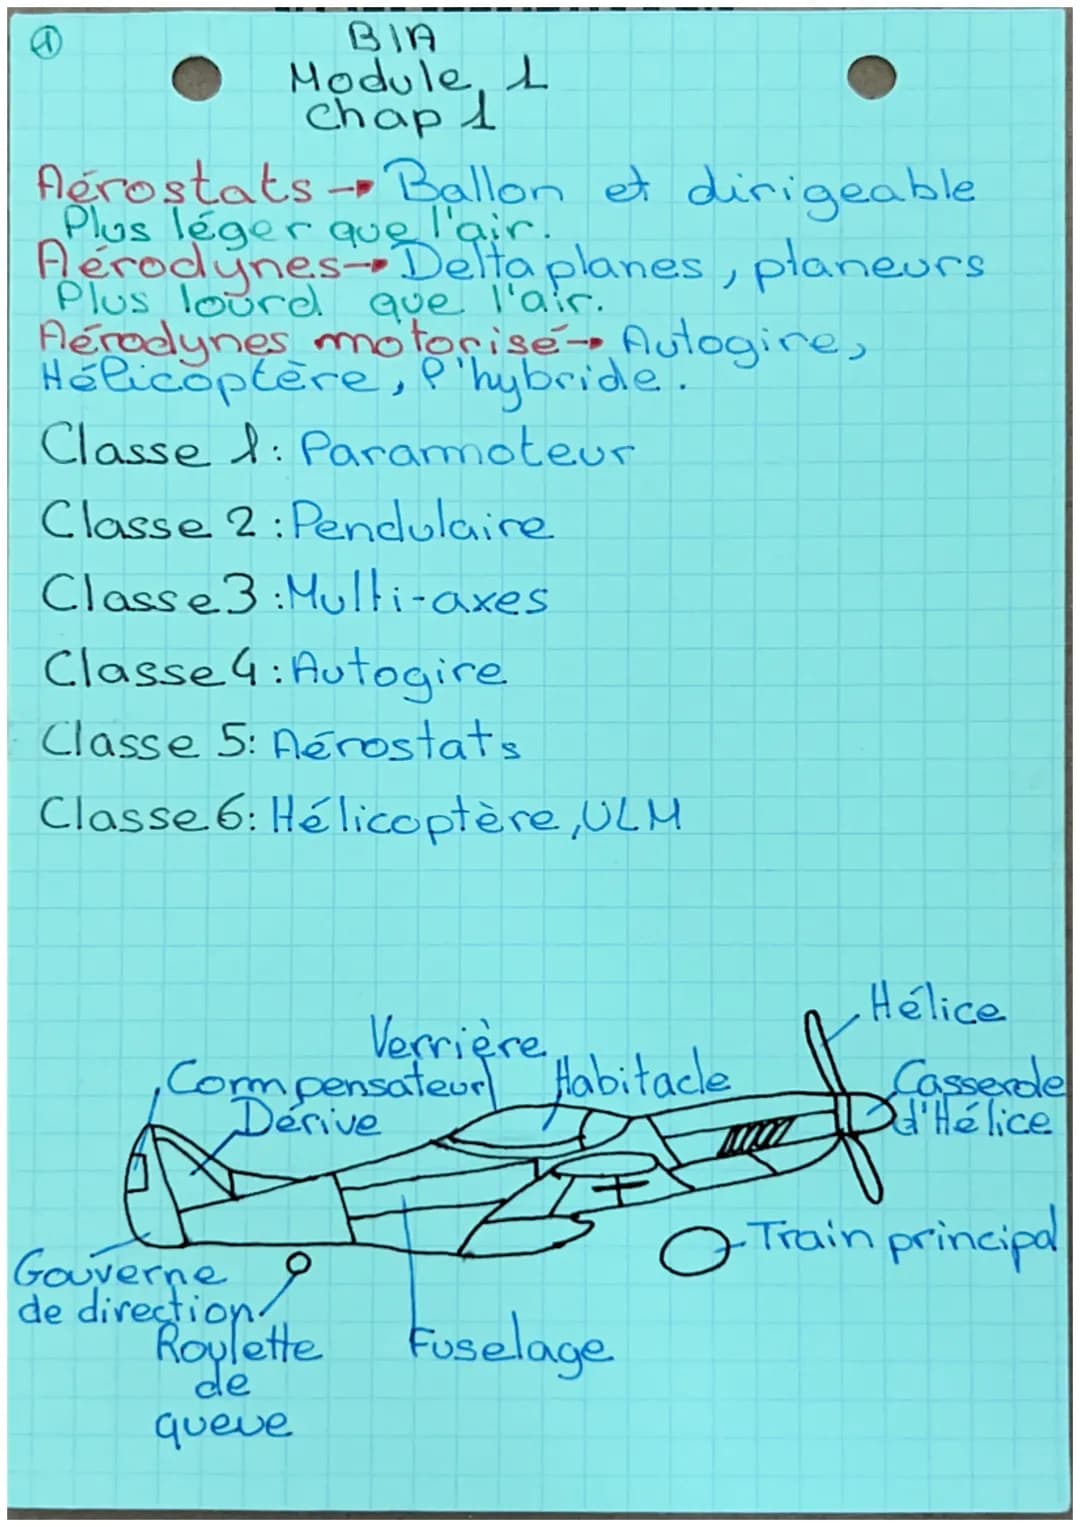 1
BIA
Module 1
Chap 1
Aérostats → Ballon et dirigeable
Plus léger que l'air.
Aérodynes → Deltaplanes, planeurs
Plus lourd que l'air.
Aérodynes motorisé → Autogire,
Hélicoptère, l'hybride.
Classe 1: Paramoteur
Classe 2: Pendulaire
Classe 3: Multi-axes
Classe 4: Autogire
Classe 5: Aérostats
Classe 6: Hélicoptère, ULM
Hélice
Verrière
Compensateur
Habitacle
Casserole
d'Hélice
Dérive
Train principal
Gouverne
de direction
Roulette
de
queue
Fuselage